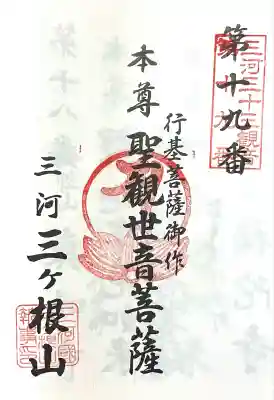 第十九番
三河三十三観音
行基菩薩御作
本尊聖観世音菩薩
三河三ヶ根山